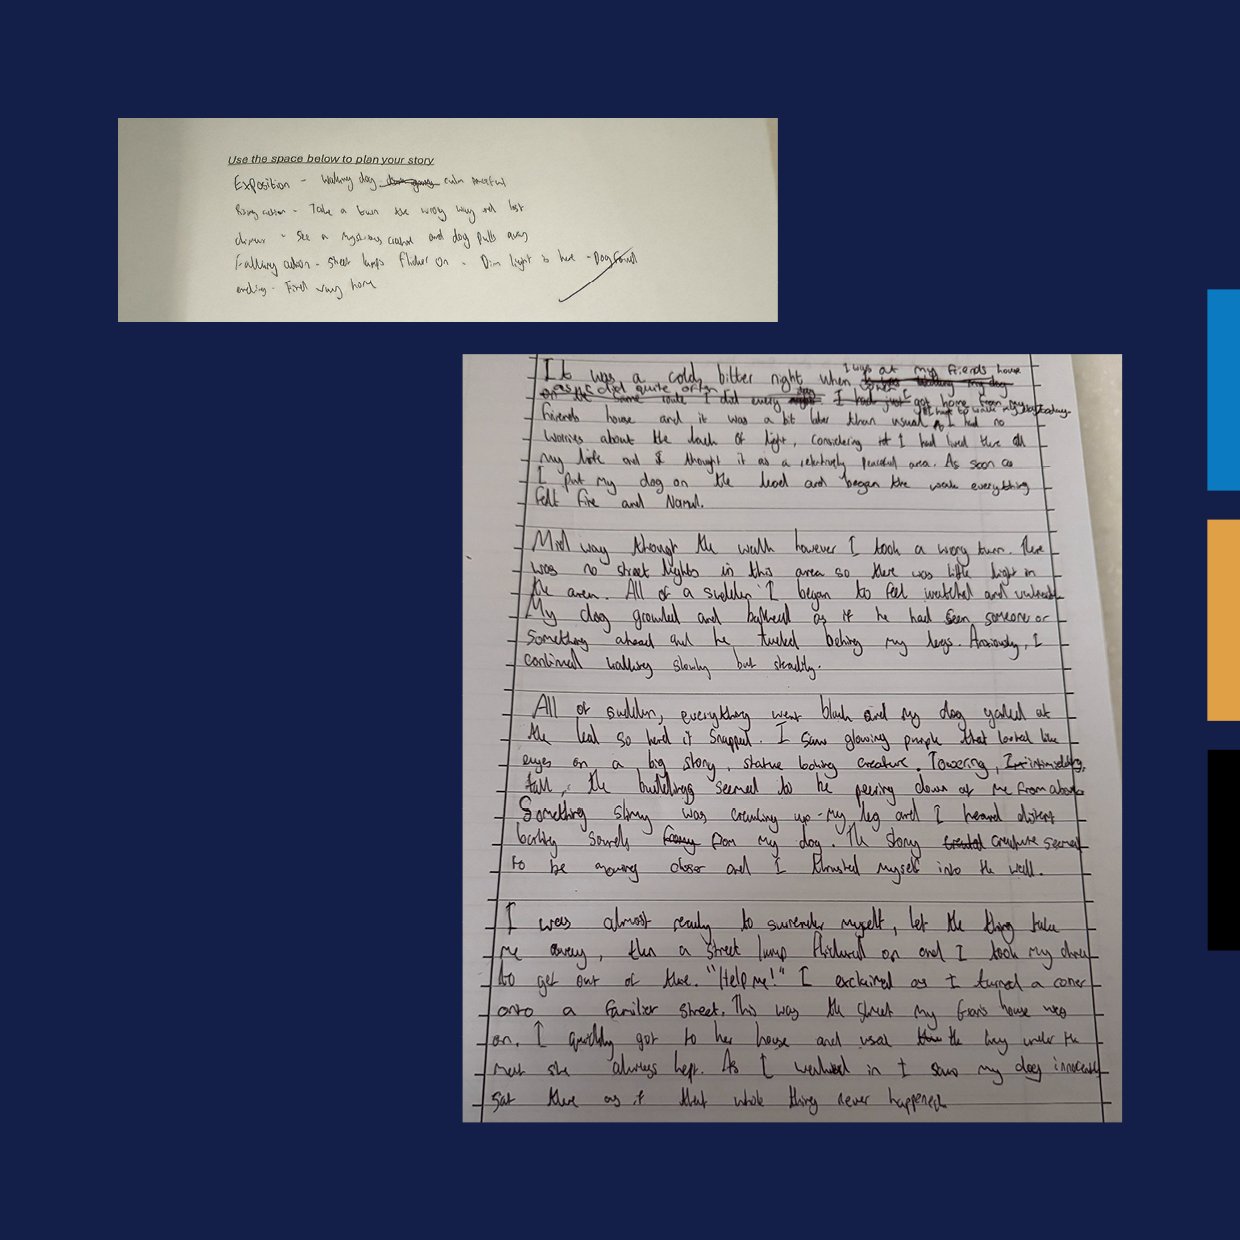 Use the space below to plan your story
Exposition - Walking dog calm peaceful
Rising action - Take a turn the wrong way and lost
climax - See a mysterious creature and dog pulls away
Falling action - street lamps flicker on - Dim light is here - Dog found
ending - Find way home
It was a cold bitter night when I was at my friends house
as we did quite often
on the same route I did every day when I got home from my
friends house and it was a bit later than usual I had no
worries about the lack of light, considering I had lived there all
my life and I thought it as a relatively peaceful area. As soon as
I put my dog on the lead and began the walk everything
felt fine and Normal.
Mid way though the walk however I took a wrong turn. There
was no street lights in this area so there was little light in
the area. All of a sudden I began to feel watched and vulnerable
My dog growled and as if he had seen someone or
something ahead and he behing my legs. Anxiously, I
continued walking slowly but steadily.
All of sudden, everything went black and my dog yanked at
the lead so hard it snapped. I saw glowing purple that looked like
eyes on a big stony, statue looking creature. Towering, intimidating,
tall, the buildings seemed to be peering down at me from above
Something slimy was crawling up my leg and I heard distent
barking sounds from my dog. The stony creature seemed
to be moving closer and I thrusted myself into the wall.
I was almost ready to surrender myself, let the thing take
me away, then a street lamp flickered on and I took my chance
to get out of there. "Help me!" I exclaimed as I turned a corner
onto a familier street. This was the street my Gran's house was
on. I quickly got to her house and used the key under the
mat she always kept. As I walked in I saw my dog innocently
sat there as if that whole thing never happened.